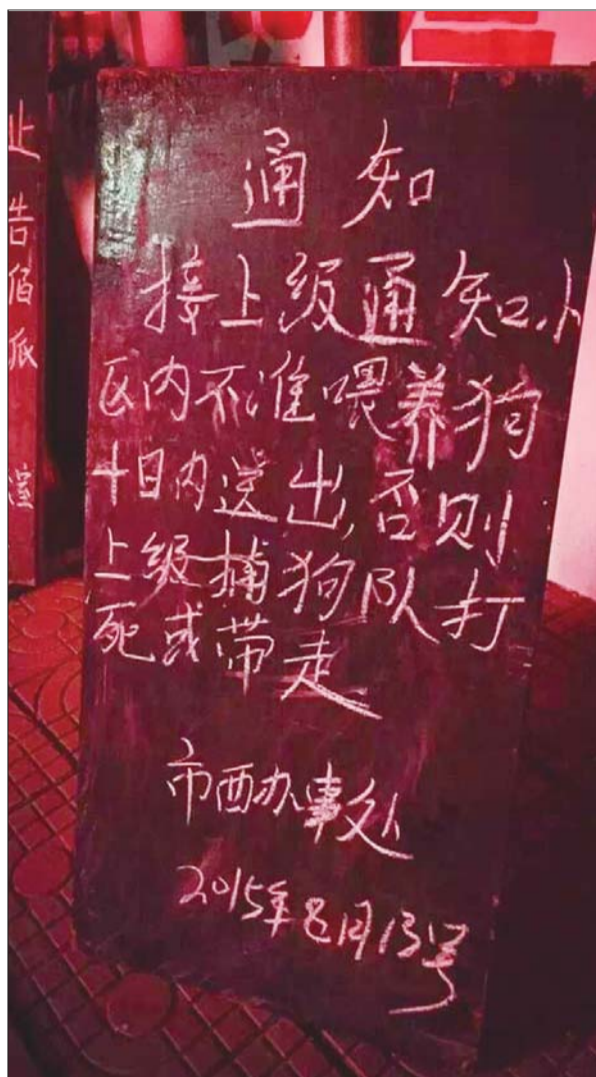 通知
接上级通知小
区内不准喂养狗
十日内送出,否则
上级捕狗队打
死或带走
市西办事处
2015年8月13号
止
告
佰